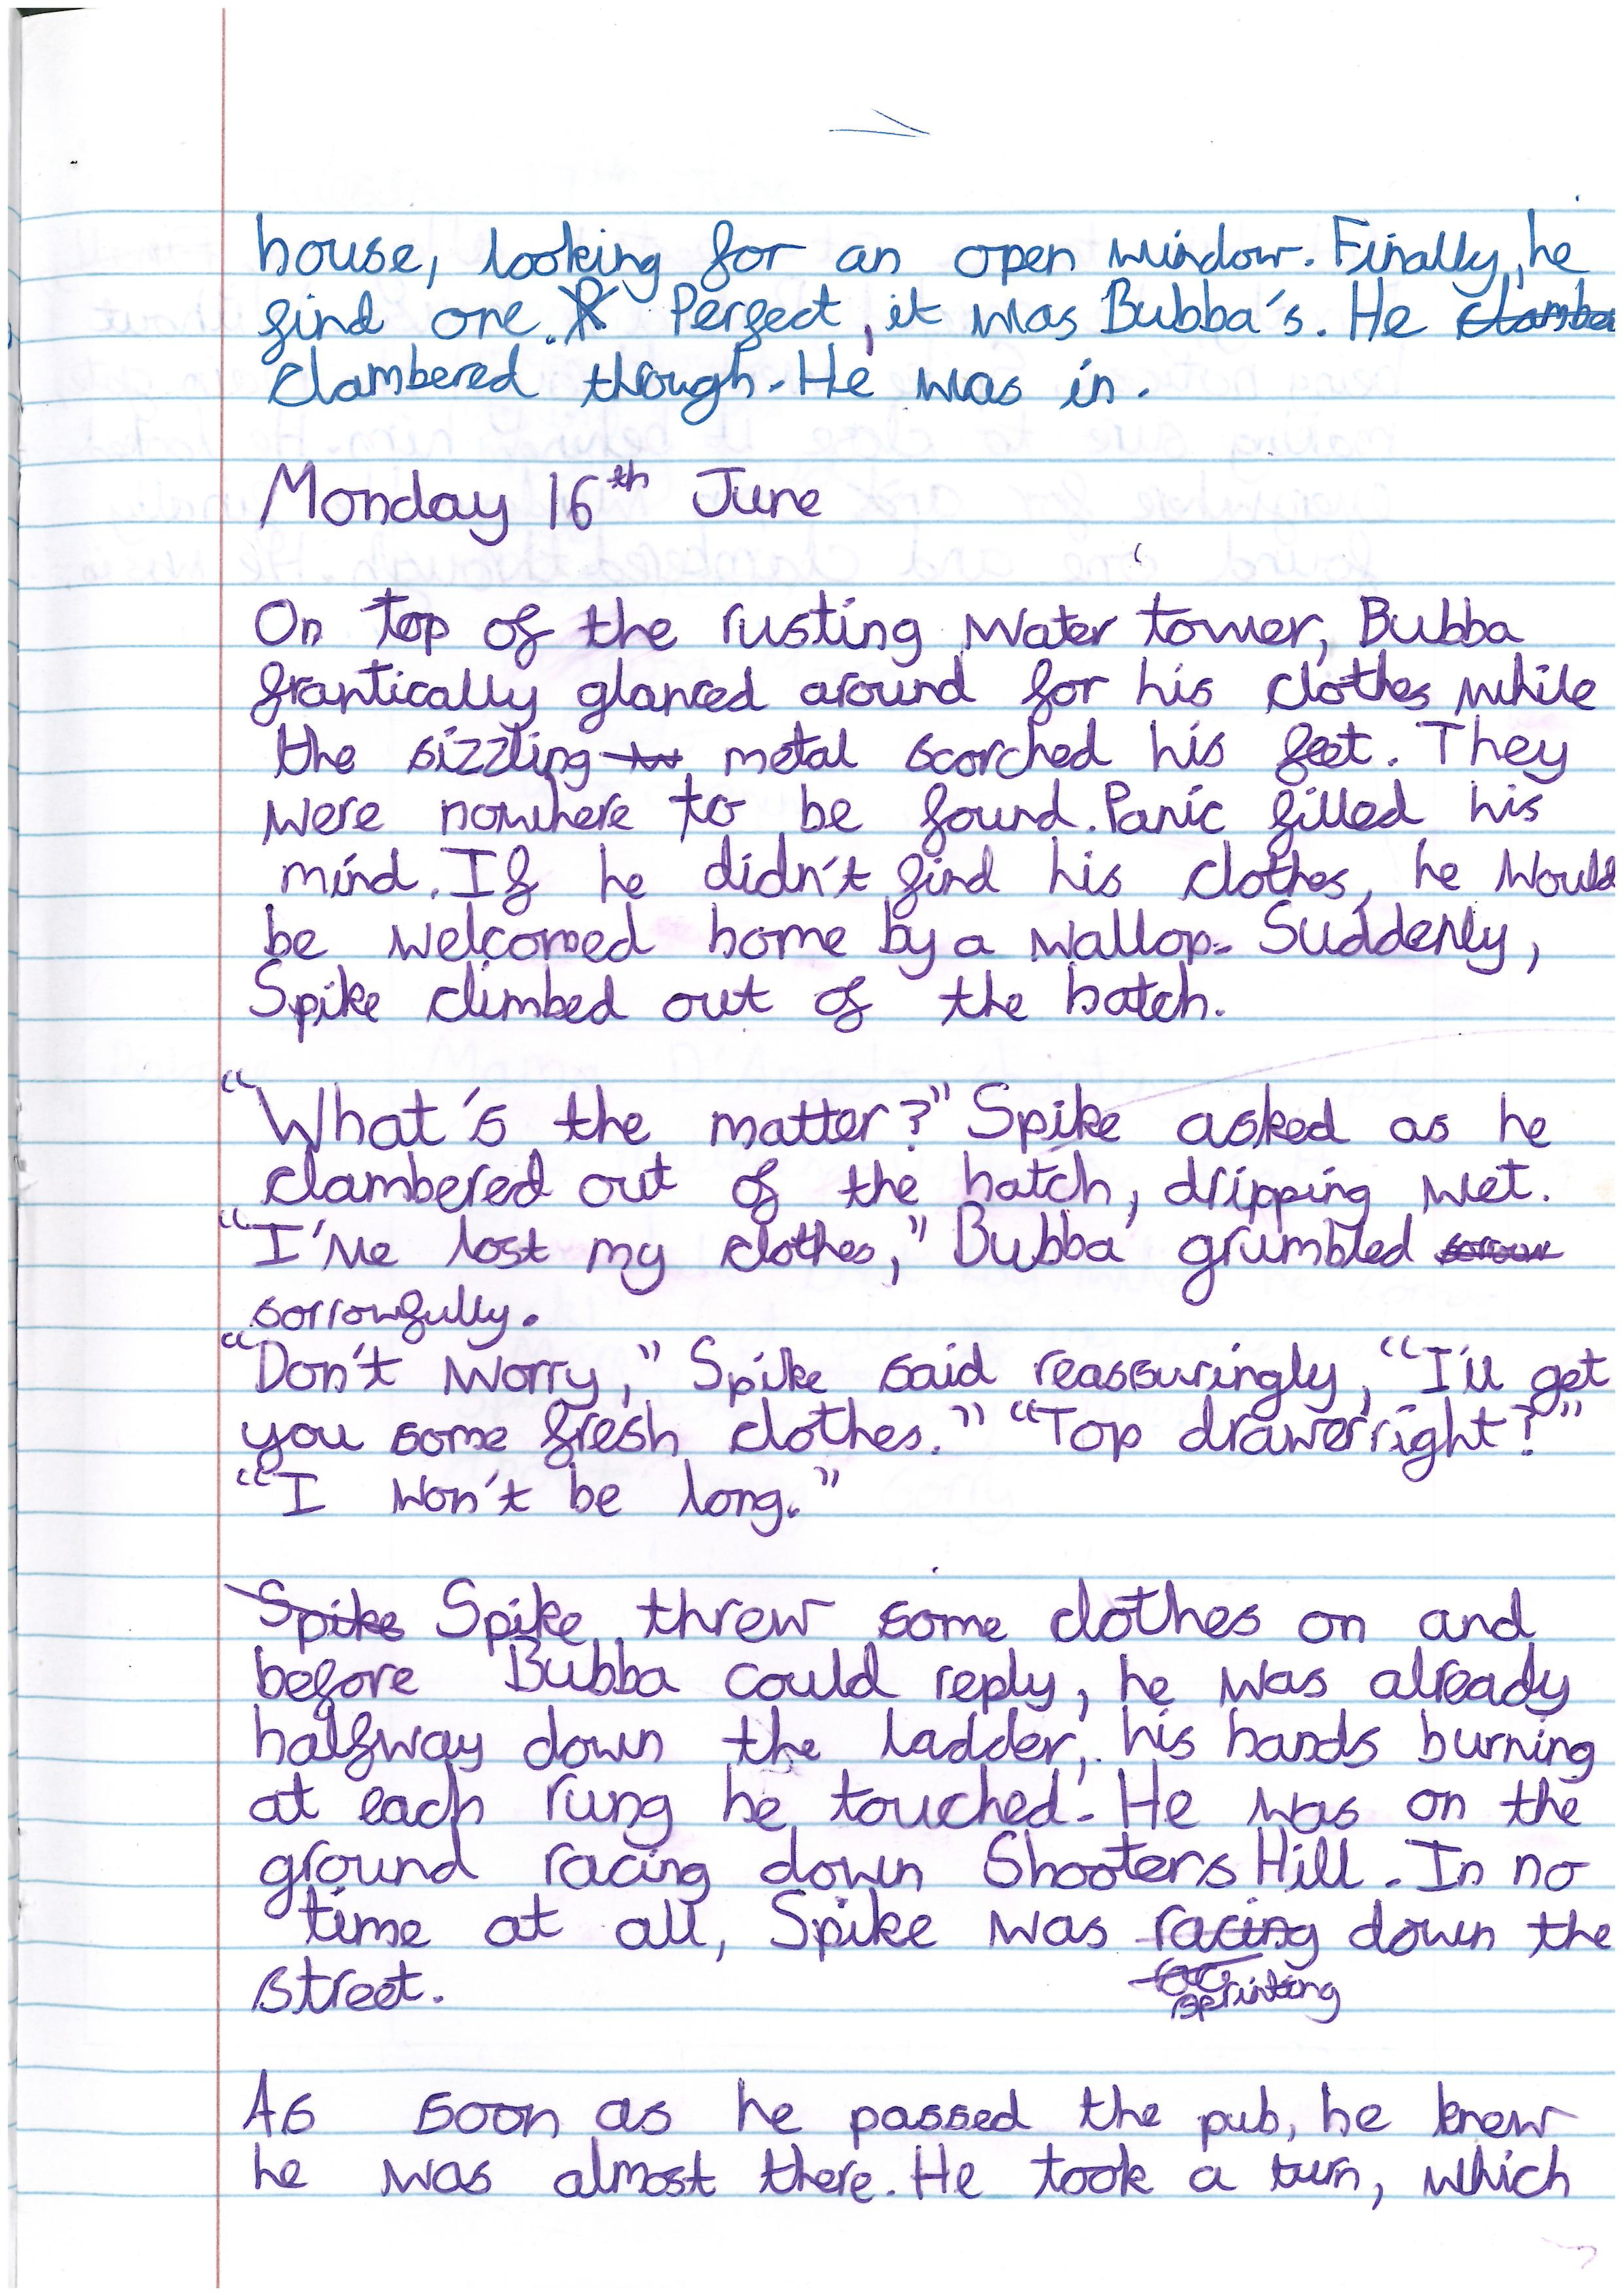 house, looking for an open window. Finally, he
find one. Perfect, it was Bubba's. He clamber
clambered though. He was in.
Monday 16th June
On top of the rusting water tower, Bubba
frantically glanced around for his clothes while
the sizzling metal scorched his feet. They
were nowhere to be found. Panic filled his
mind. If he didn't find his clothes, he would
be welcomed home by a wallop. Suddenly,
Spike climbed out of the hatch.
"What's the matter?" Spike asked as he
clambered out of the hatch, dripping wet.
"I've lost my clothes," Bubba grumbled
sorrowfully.
"Don't worry," Spike said reassuringly, "I'll get
you some fresh clothes." "Top drawer right?"
"I won't be long."
Spike Spike threw some clothes on and
before Bubba could reply, he was already
halfway down the ladder, his hands burning
at each rung he touched. He was on the
ground racing down Shooters Hill. In no
time at all, Spike was racing down the
sprinting
street.
As soon as he passed the pub, he knew
he was almost there. He took a turn, which